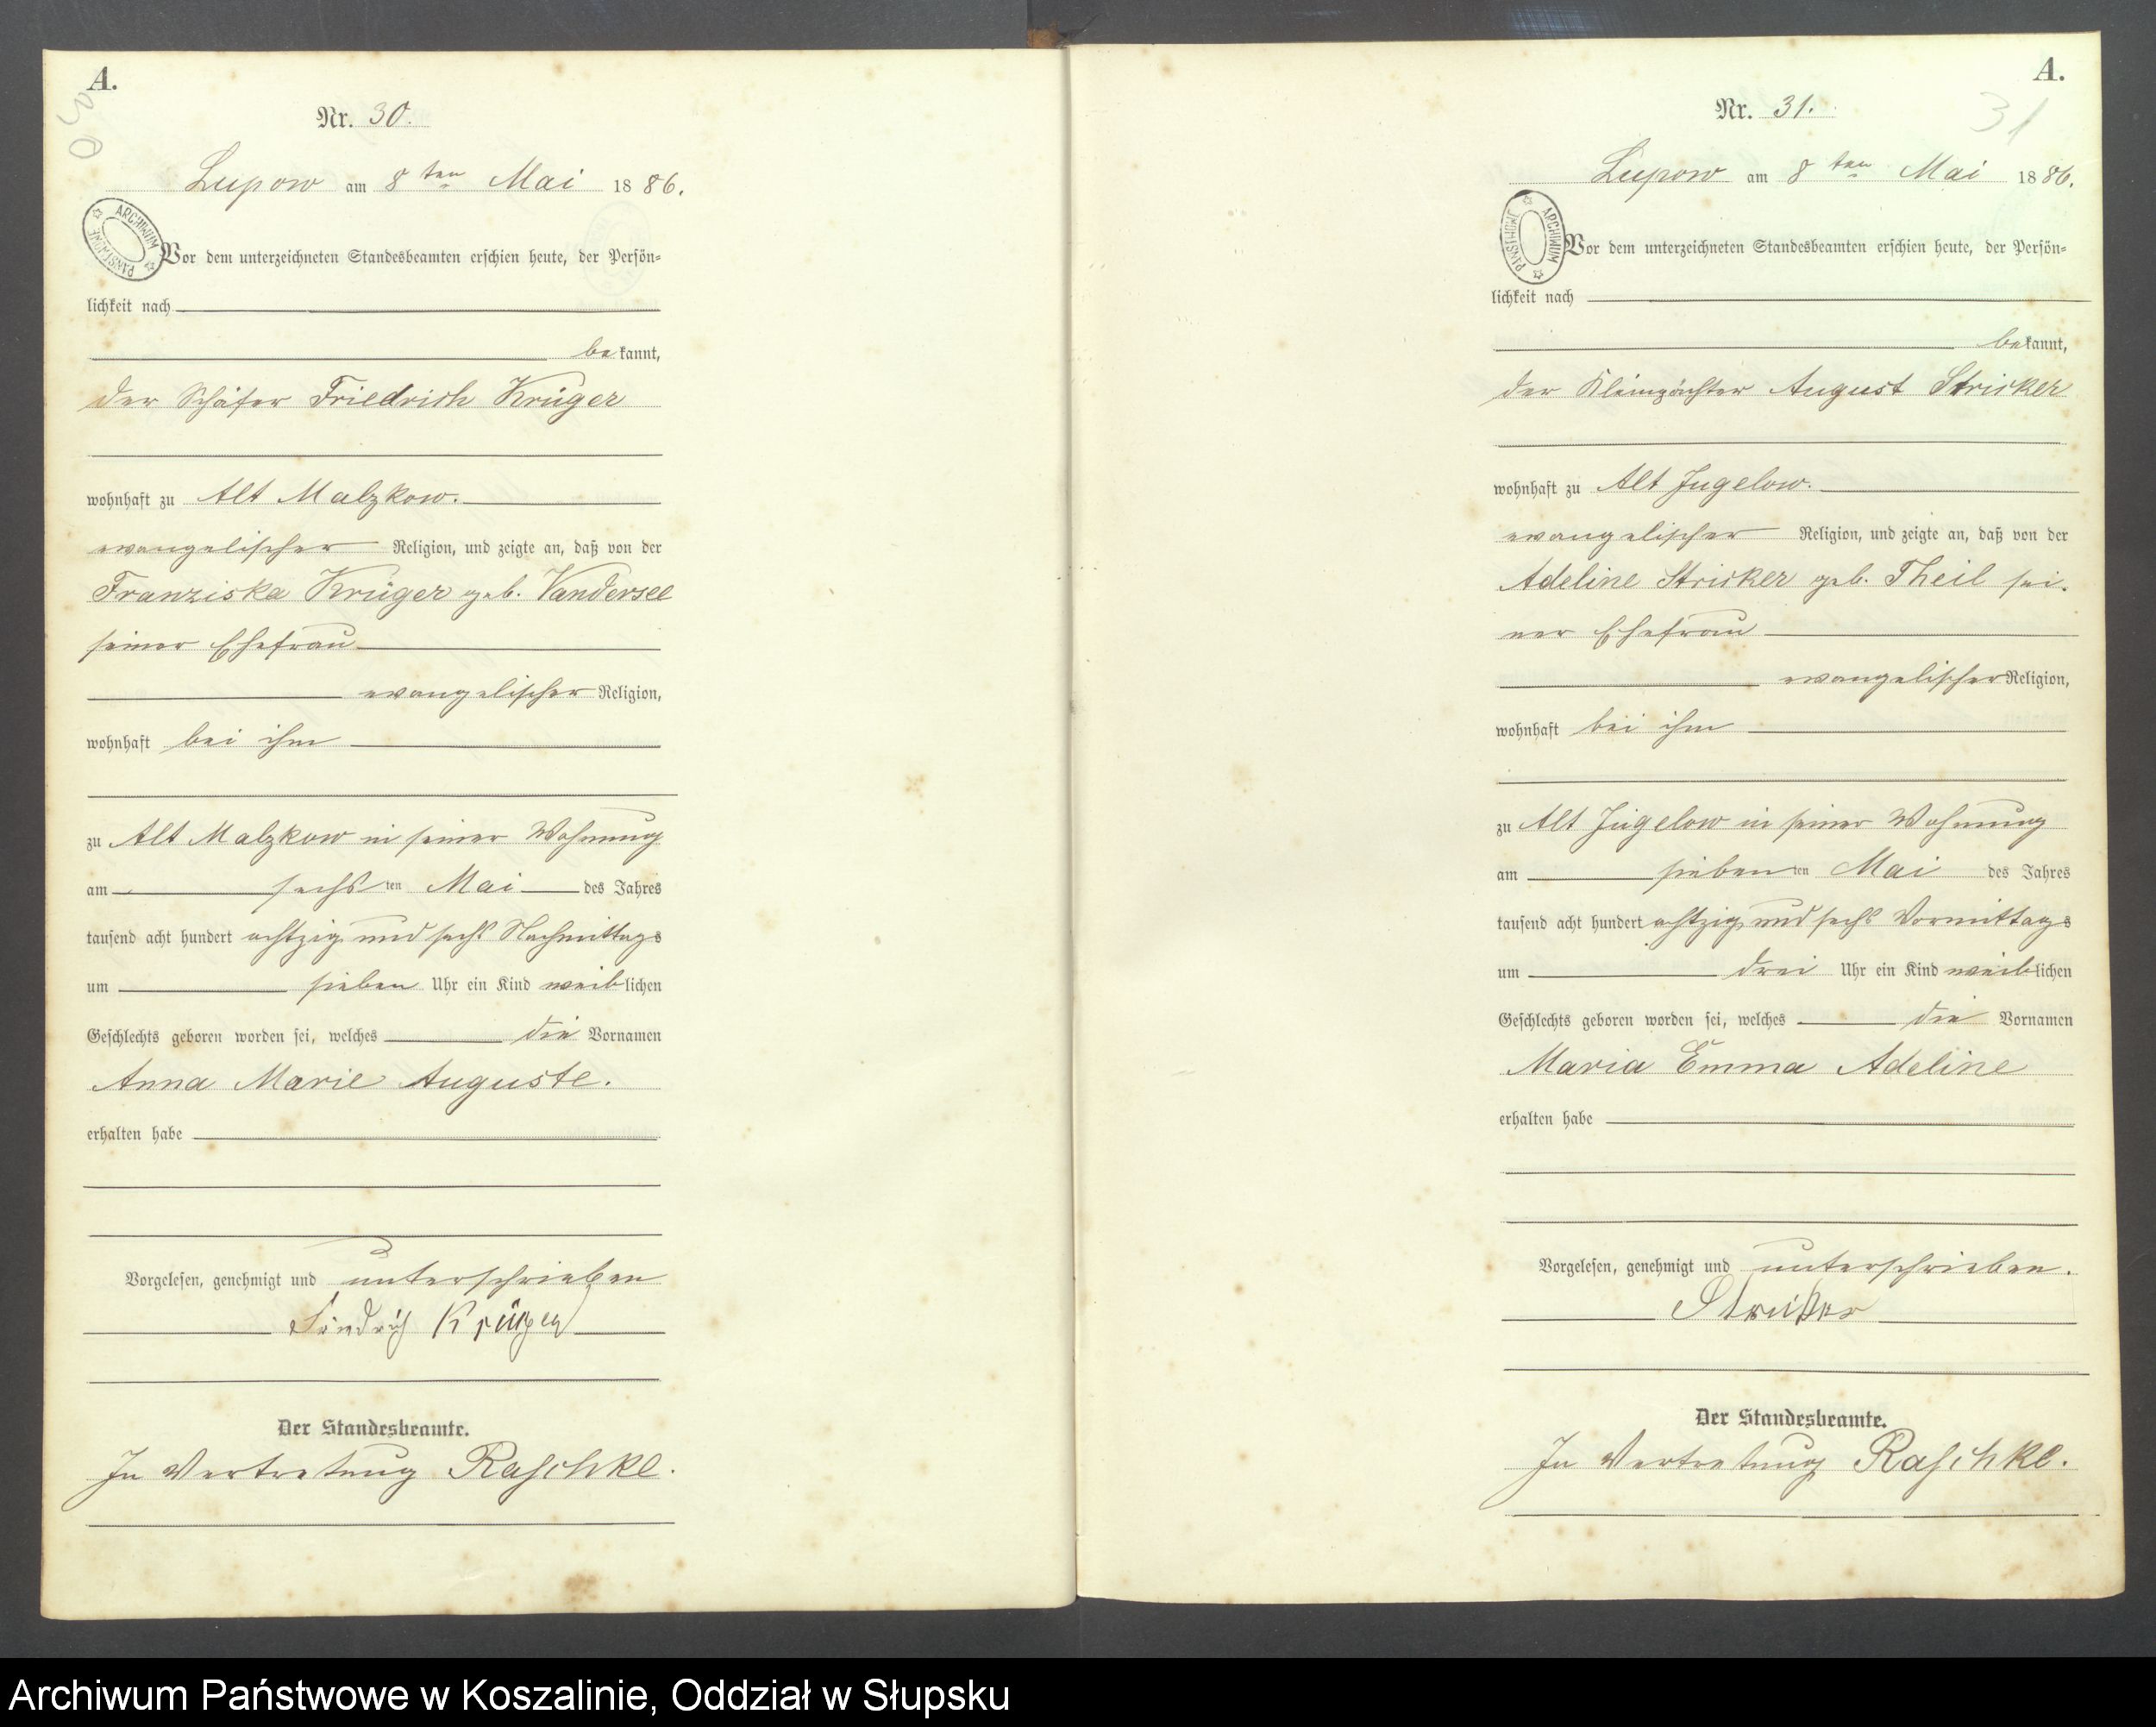 A.
30
Nr. 30.
Lupow am 8ten Mai 1886.
ARCHIWUM PAŃSTWOWE
Vor dem unterzeichneten Standesbeamten erschien heute, der Persön-
lichkeit nach
bekannt,
der Schäfer Friedrich Krüger
wohnhaft zu Alt Malzkow.
evangelischer Religion, und zeigte an, daß von der
Franziska Krüger geb. Vandersee
seiner Ehefrau
evangelischer Religion,
wohnhaft bei ihm
zu Alt Malzkow in seiner Wohnung
am sechsten Mai des Jahres
tausend acht hundert achtzig und sechs Nachmittags
um sieben Uhr ein Kind weiblichen
Geschlechts geboren worden sei, welches die Vornamen
Anna Marie Auguste.
erhalten habe
Vorgelesen, genehmigt und unterschrieben
Friedrich Krüger
Der Standesbeamte.
In Vertretung Raschke.
A.
31
Nr. 31.
Lupow am 8ten Mai 1886.
ARCHIWUM PAŃSTWOWE
Vor dem unterzeichneten Standesbeamten erschien heute, der Persön-
lichkeit nach
bekannt,
der Kleinpächter August Stricker
wohnhaft zu Alt Jugelow.
evangelischer Religion, und zeigte an, daß von der
Adeline Stricker geb. Theil sei-
ner Ehefrau
evangelischer Religion,
wohnhaft bei ihm
zu Alt Jugelow in seiner Wohnung
am siebenten Mai des Jahres
tausend acht hundert achtzig und sechs Vormittags
um drei Uhr ein Kind weiblichen
Geschlechts geboren worden sei, welches die Vornamen
Maria Emma Adeline
erhalten habe
Vorgelesen, genehmigt und unterschrieben.
Stricker
Der Standesbeamte.
In Vertretung Raschke.
Archiwum Państwowe w Koszalinie, Oddział w Słupsku